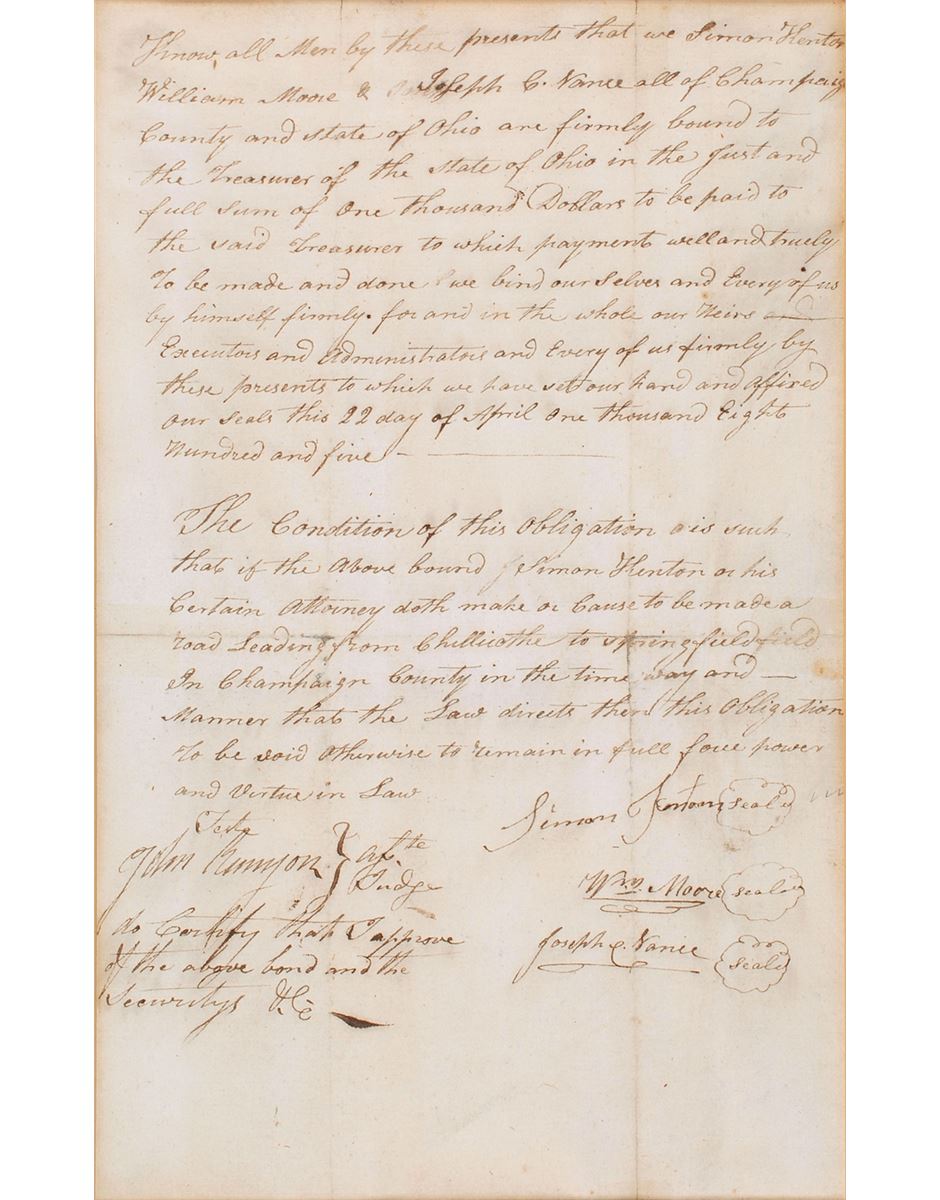 Know all Men by these presents that we Simon Kenton
William Moore & Joseph C. Vance all of Champaig
County and state of Ohio are firmly bound to
the Treasurer of the state of Ohio in the Just and
full sum of One thousand Dollars to be paid to
the said Treasurer to which payment well and truely
To be made and done we bind our selves and Every of us
by himself firmly. for and in the whole our Heirs
Executors and Administrators and Every of us firmly by
these presents to which we have set our hand and affixed
our seals this 22 day of April One thousand Eight
Hundred and five
The Condition of this Obligation is such
that if the Above bound Simon Kenton or his
Certain Attorney doth make or Cause to be made a
road Leading from Chillicothe to springfield field
In Champaign County in the time way and
Manner that the Law directs then this Obligation
To be void Otherwise to remain in full force power
and Virtue in Law
Teste
Simon Kenton seald
John Runyon } Judge
Wm. Moore seald
do Certify that I approve
Joseph C. Vance seald
of the above bond and the
securitys &c